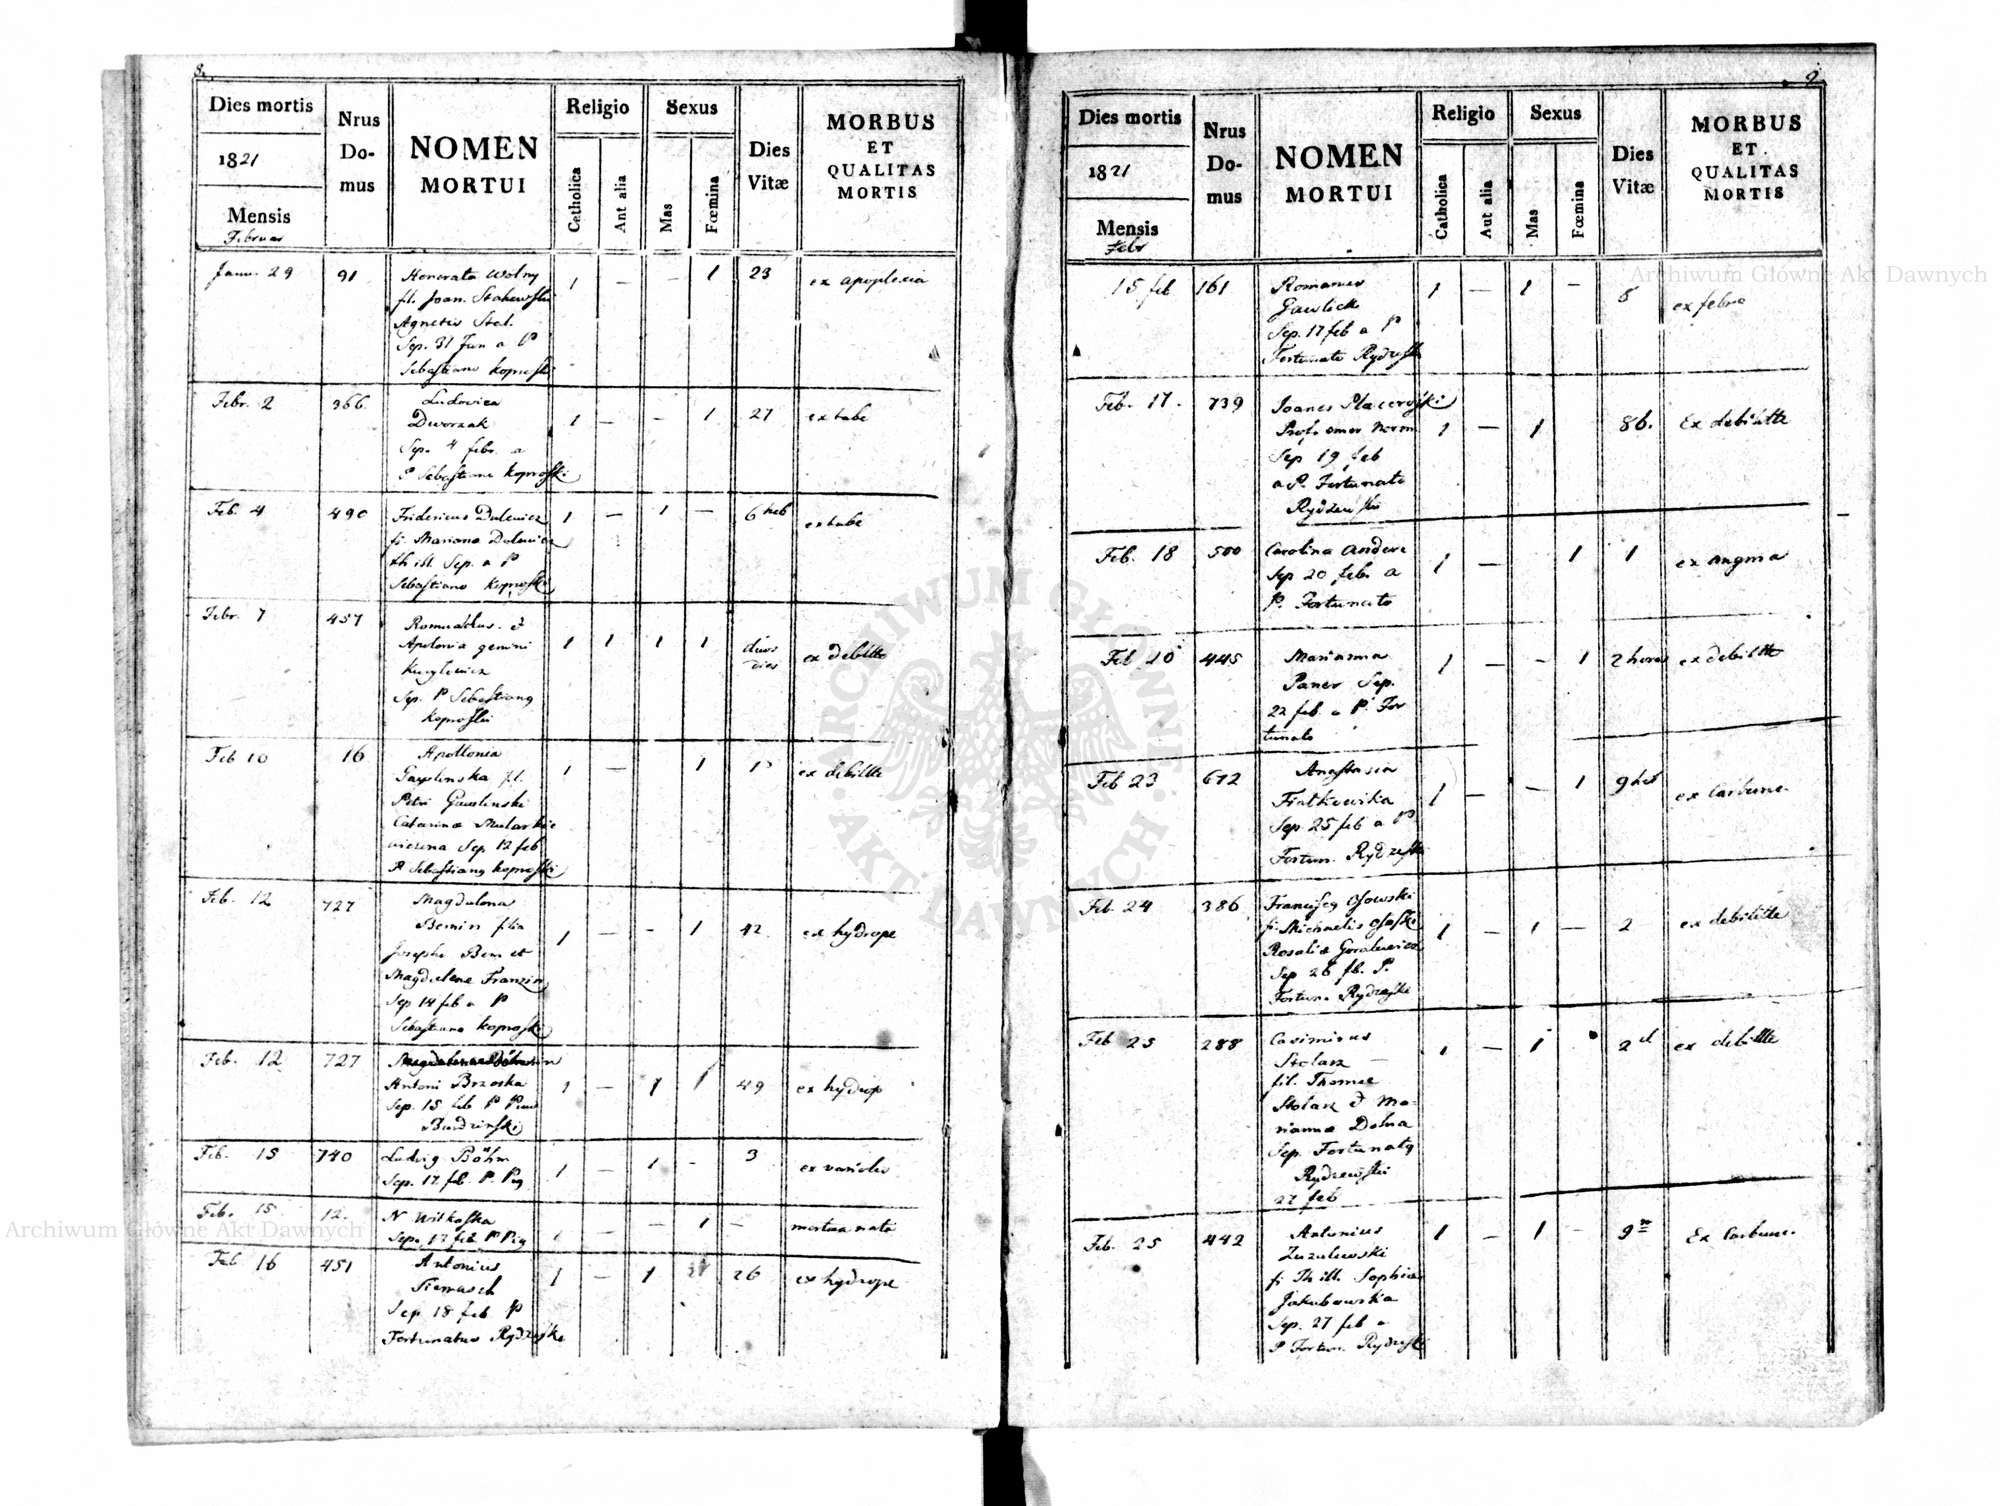 8.
Dies mortis
Nrus Do- mus
NOMEN MORTUI
Religio
Sexus
Dies Vitæ
MORBUS ET QUALITAS MORTIS
1821
Catholica
Aut alia
Mas
Fœmina
Mensis
Februar
Janu. 29 91 Honorata Wolny 1 — – 1 23 ex apoplexia
fil. Joan.
Agnetis
Sep. 31 Jan a P
Sebastiano Koproski
Febr. 2 366. Ludovica
Dworzak 1 — – 1 27 ex tabe
Sep. 4 febr. a
P Sebastiano Koproski
Feb. 4 490 Fridericus Dulewicz 1 — 1 — 6 heb ex tabe
fi. Mariana
th ill. Sep. a P
Sebastiano Koproski
Febr. 7 457 Romualdus. et
Apolonia gemini 1 1 1 1 duos dies ex debilitte
Kurylewicz
Sep. P Sebastiano
Koproski
Feb 10 16 Apollonia
Gawlinska fil. 1 — 1 1 ex debilitte
Petri Gawlinski
Catarina
Sep. 12 feb
P Sebastiano Koproski
Feb. 12 727 Magdalena
Bemin filia 1 — - 1 42 ex hydrope
Josephi Bem et
Magdalene Franzin
Sep 14 feb a P
Sebastiano Koproski
Feb. 12 727
Antoni Brzoska 1 — 1 1 49 ex hydrop
Sep. 15 feb P
Budzinski
Feb. 15 740 Ludvig Böhm 1 — 1 - 3 ex variolis
Sep. 17 feb. P. Pig
Feb. 15 12. N Witkoska 1 — – 1 — mortua nata
Sep. 17 feb P Pig
Feb 16 451 Antonius
Siemasch 1 — 1 26 ex hydrope
Sep 18 feb P
Fortunatus Rydzeski
9.
Dies mortis
Nrus Do- mus
NOMEN MORTUI
Religio
Sexus
Dies Vitæ
MORBUS ET QUALITAS MORTIS
1821
Catholica
Aut alia
Mas
Fœmina
Mensis
Febr
15 feb 161 Romanus 1 — 1 — 5 ex febre
Gawlick
Sep. 17 feb a P
Fortunato Rydzeski
Feb. 17. 739 Joanes Placeroski
Prof. emer Norm 1 — 1 86. Ex debilitte
Sep 19 feb
a P. Fortunato
Rydzewski
Feb. 18 500 Carolina Andere 1 — 1 1 ex angina
Sep 20 febr a
P. Fortunato
Feb 20 445 Marianna 1 – – 1 2 horas ex debilitte
Paner Sep.
22 feb. a P. For
tunato
Feb 23 672 Anastasia
Fiałkowska 1 — – 1 9 heb ex Carbunc.
Sep. 25 feb a P
Fortun. Rydzeski
Feb. 24 386 Franciscq Osowski
fi. Michaelis Ososki 1 — 1 — 2 ex debilitte
Rosaliæ Goralewicz
Sep 26 fb. P.
Fortun. Rydzeski
Feb 25 288 Casimirus 1 — 1 2 d ex debilitte
Stolarz
fil. Thomæ
Stolarz et Ma-
rianna Dolna
Sep. Fortunatq
Rydzewski
27 feb
Feb. 25 442 Antonius 1 — 1 — 9 Ex Carbunc.
Zuzulewski
fi Th ill. Sophia
Jakubowska
Sep. 27 feb a
P Fortun. Rydzeski
Archiwum Główne Akt Dawnych
Archiwum Główne Akt Dawnych
ARCHIWUM GŁÓWNE · AKT DAWNYCH ·